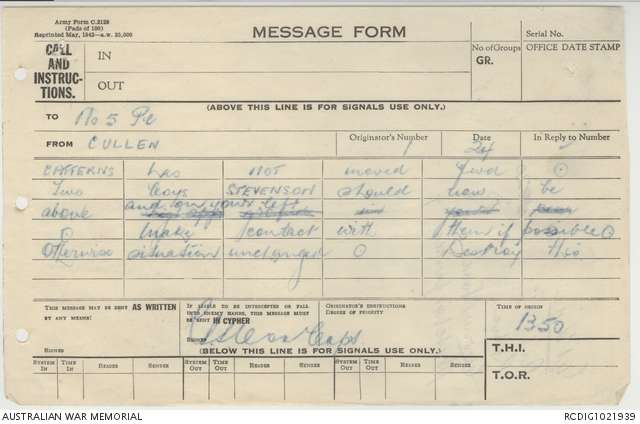 Army Form C.2128
(Pads of 100)
Reprinted May, 1943—a.w. 25,000
MESSAGE FORM
Serial No.
CALL AND INSTRUCTIONS.
IN
OUT
No. of Groups
GR.
OFFICE DATE STAMP
(ABOVE THIS LINE IS FOR SIGNALS USE ONLY.)
TO No 5 Pl
FROM CULLEN
Originator's Number
Date
24
In Reply to Number
has not moved fwd ⊙
Two Coys STEVENSON should now be
above and on your left
⊙ Make contact with them if possible ⊙
Otherwise situation unchanged ⊙ Destroy this
THIS MESSAGE MAY BE SENT AS WRITTEN BY ANY MEANS!
SIGNED
IF LIABLE TO BE INTERCEPTED OR FALL INTO ENEMY HANDS, THIS MESSAGE MUST BE SENT IN CYPHER
SIGNED
Capt
ORIGINATOR'S INSTRUCTIONS
DEGREE OF PRIORITY
TIME OF ORIGIN
1350
(BELOW THIS LINE IS FOR SIGNALS USE ONLY.)
T.H.I.
T.O.R.
SYSTEM IN TIME IN READER SENDER SYSTEM OUT TIME OUT READER SENDER SYSTEM OUT TIME OUT READER SENDER
AUSTRALIAN WAR MEMORIAL
RCDIG1021939